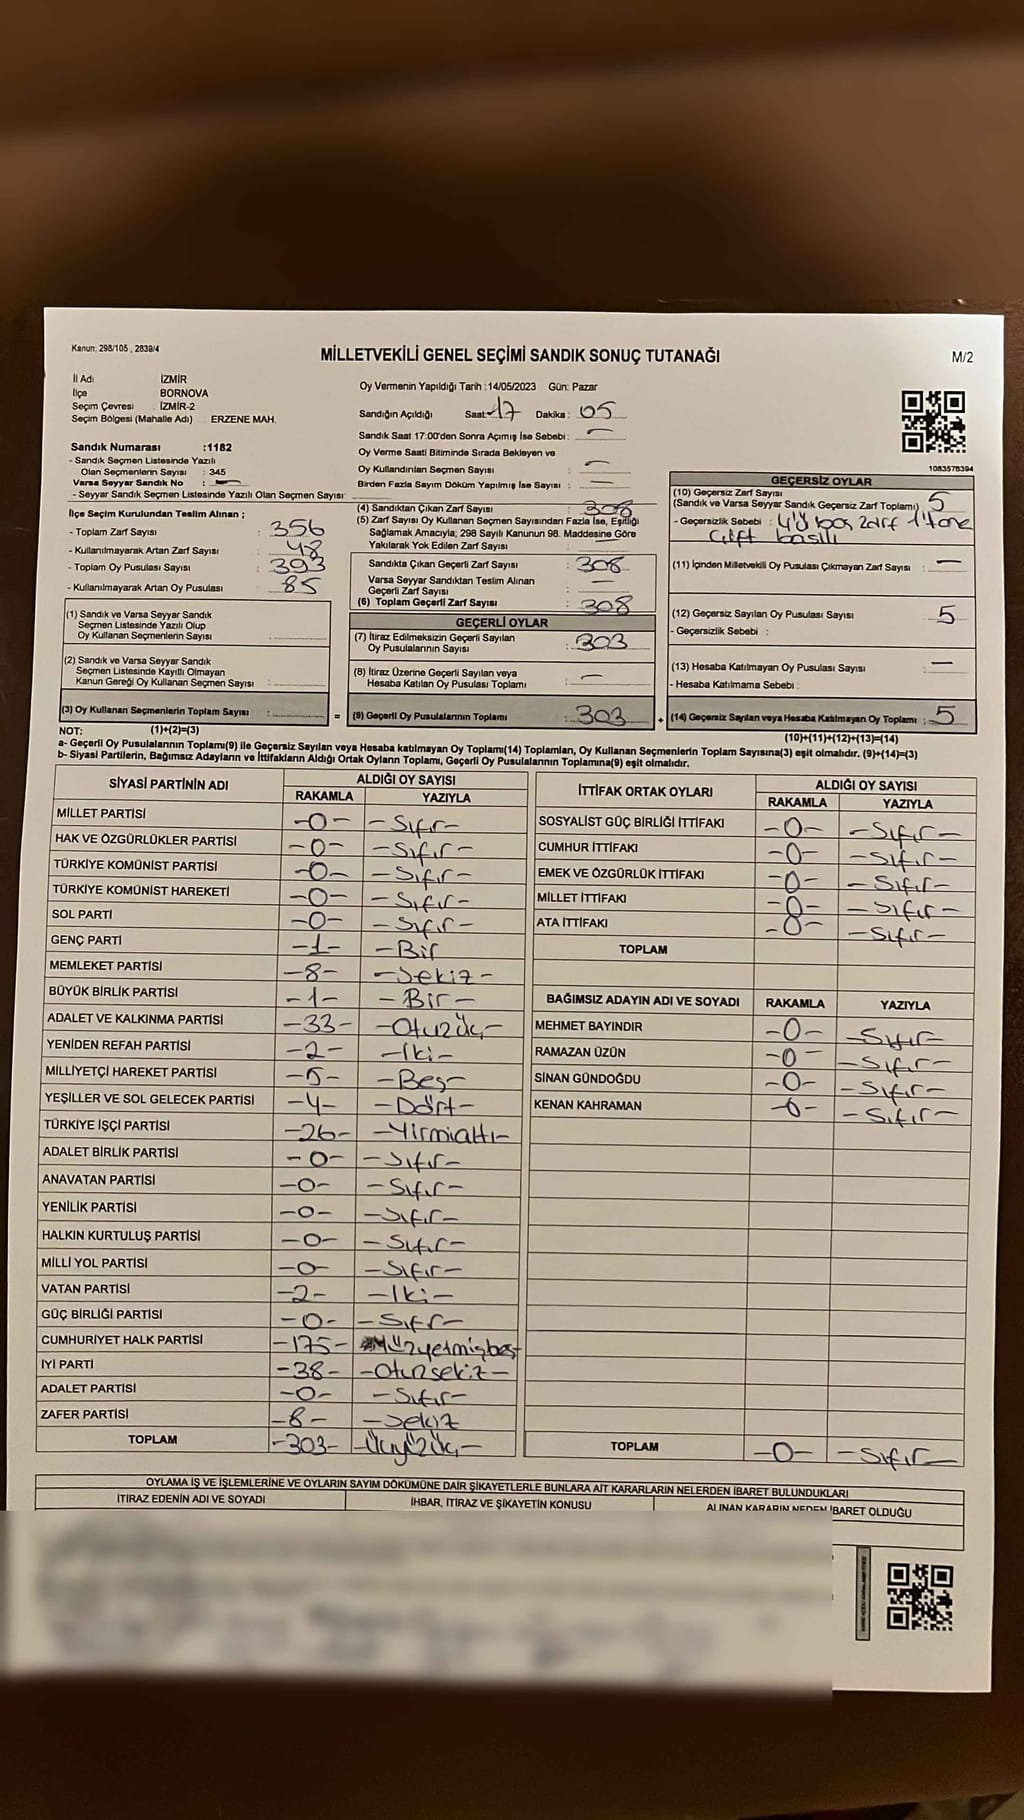 Kanun: 298/105 , 2839/4
MİLLETVEKİLİ GENEL SEÇİMİ SANDIK SONUÇ TUTANAĞI
M/2
İl Adı : İZMİR
İlçe : BORNOVA
Seçim Çevresi : İZMİR-2
Seçim Bölgesi (Mahalle Adı) : ERZENE MAH.
Oy Vermenin Yapıldığı Tarih :14/05/2023 Gün: Pazar
Sandığın Açıldığı Saat: 17 Dakika : 05
Sandık Saat 17:00'den Sonra Açımış İse Sebebi : —
Oy Verme Saati Bitiminde Sırada Bekleyen ve
Oy Kullandırılan Seçmen Sayısı : —
Birden Fazla Sayım Döküm Yapılmış İse Sayısı : —
Sandık Numarası :1182
- Sandık Seçmen Listesinde Yazılı
Olan Seçmenlerin Sayısı : 345
Varsa Seyyar Sandık No : —
- Seyyar Sandık Seçmen Listesinde Yazılı Olan Seçmen Sayısı:
İlçe Seçim Kurulundan Teslim Alınan ;
- Toplam Zarf Sayısı : 356
- Kullanılmayarak Artan Zarf Sayısı : 48
- Toplam Oy Pusulası Sayısı : 393
- Kullanılmayarak Artan Oy Pusulası : 85
(1) Sandık ve Varsa Seyyar Sandık
Seçmen Listesinde Yazılı Olup
Oy Kullanan Seçmenlerin Sayısı :
(2) Sandık ve Varsa Seyyar Sandık
Seçmen Listesinde Kayıtlı Olmayan
Kanun Gereği Oy Kullanan Seçmen Sayısı :
(3) Oy Kullanan Seçmenlerin Toplam Sayısı :
(4) Sandıktan Çıkan Zarf Sayısı : 308
(5) Zarf Sayısı Oy Kullanan Seçmen Sayısından Fazla İse, Eşitliği
Sağlamak Amacıyla; 298 Sayılı Kanunun 98. Maddesine Göre
Yakılarak Yok Edilen Zarf Sayısı :
Sandıkta Çıkan Geçerli Zarf Sayısı : 308
Varsa Seyyar Sandıktan Teslim Alınan
Geçerli Zarf Sayısı : —
(6) Toplam Geçerli Zarf Sayısı : 308
GEÇERLİ OYLAR
(7) İtiraz Edilmeksizin Geçerli Sayılan
Oy Pusulalarının Sayısı : 303
(8) İtiraz Üzerine Geçerli Sayılan veya
Hesaba Katılan Oy Pusulası Toplamı : —
= (9) Geçerli Oy Pusulalarının Toplamı : 303
1083578394
GEÇERSİZ OYLAR
(10) Geçersiz Zarf Sayısı
(Sandık ve Varsa Seyyar Sandık Geçersiz Zarf Toplamı) : 5
- Geçersizlik Sebebi : 4'ü boş zarf 1 tane
çift basılı
(11) İçinden Milletvekili Oy Pusulası Çıkmayan Zarf Sayısı : —
(12) Geçersiz Sayılan Oy Pusulası Sayısı : 5
- Geçersizlik Sebebi :
(13) Hesaba Katılmayan Oy Pusulası Sayısı : —
- Hesaba Katılmama Sebebi :
+ (14) Geçersiz Sayılan veya Hesaba Katılmayan Oy Toplamı : 5
NOT: (1)+(2)=(3)
(10)+(11)+(12)+(13)=(14)
a- Geçerli Oy Pusulalarının Toplamı(9) ile Geçersiz Sayılan veya Hesaba katılmayan Oy Toplamı(14) Toplamları, Oy Kullanan Seçmenlerin Toplam Sayısına(3) eşit olmalıdır. (9)+(14)=(3)
b- Siyasi Partilerin, Bağımsız Adayların ve İttifakların Aldığı Ortak Oyların Toplamı, Geçerli Oy Pusulalarının Toplamına(9) eşit olmalıdır.
SİYASİ PARTİNİN ADI ALDIĞI OY SAYISI
RAKAMLA YAZIYLA
MİLLET PARTİSİ -0- -Sıfır-
HAK VE ÖZGÜRLÜKLER PARTİSİ -0- -Sıfır-
TÜRKİYE KOMÜNİST PARTİSİ -0- -Sıfır-
TÜRKİYE KOMÜNİST HAREKETİ -0- -Sıfır-
SOL PARTİ -0- -Sıfır-
GENÇ PARTİ -1- -Bir
MEMLEKET PARTİSİ -8- -Sekiz-
BÜYÜK BİRLİK PARTİSİ -1- -Bir-
ADALET VE KALKINMA PARTİSİ -33- -Otuzüç-
YENİDEN REFAH PARTİSİ -2- -İki-
MİLLİYETÇİ HAREKET PARTİSİ -5- -Beş-
YEŞİLLER VE SOL GELECEK PARTİSİ -4- -Dört-
TÜRKİYE İŞÇİ PARTİSİ -26- -Yirmialtı-
ADALET BİRLİK PARTİSİ -0- -Sıfır-
ANAVATAN PARTİSİ -0- -Sıfır-
YENİLİK PARTİSİ -0- -Sıfır-
HALKIN KURTULUŞ PARTİSİ -0- -Sıfır-
MİLLİ YOL PARTİSİ -0- -Sıfır-
VATAN PARTİSİ -2- -İki-
GÜÇ BİRLİĞİ PARTİSİ -0- -Sıfır-
CUMHURİYET HALK PARTİSİ -175- Yüzyetmişbeş-
İYİ PARTİ -38- -Otuzsekiz-
ADALET PARTİSİ -0- -Sıfır-
ZAFER PARTİSİ -8- -Sekiz
TOPLAM -303- -Üçyüzüç-
İTTİFAK ORTAK OYLARI ALDIĞI OY SAYISI
RAKAMLA YAZIYLA
SOSYALİST GÜÇ BİRLİĞİ İTTİFAKI -0- -Sıfır-
CUMHUR İTTİFAKI -0- -Sıfır-
EMEK VE ÖZGÜRLÜK İTTİFAKI -0- -Sıfır-
MİLLET İTTİFAKI -0- -Sıfır-
ATA İTTİFAKI -0- -Sıfır-
TOPLAM
BAĞIMSIZ ADAYIN ADI VE SOYADI RAKAMLA YAZIYLA
MEHMET BAYINDIR -0- -Sıfır-
RAMAZAN ÜZÜN -0- -Sıfır-
SİNAN GÜNDOĞDU -0- -Sıfır-
KENAN KAHRAMAN -0- -Sıfır-
TOPLAM -0- -Sıfır-
OYLAMA İŞ VE İŞLEMLERİNE VE OYLARIN SAYIM DÖKÜMÜNE DAİR ŞİKAYETLERLE BUNLARA AİT KARARLARIN NELERDEN İBARET BULUNDUKLARI
İTİRAZ EDENİN ADI VE SOYADI İHBAR, İTİRAZ VE ŞİKAYETİN KONUSU ALINAN KARARIN NEDEN İBARET OLDUĞU